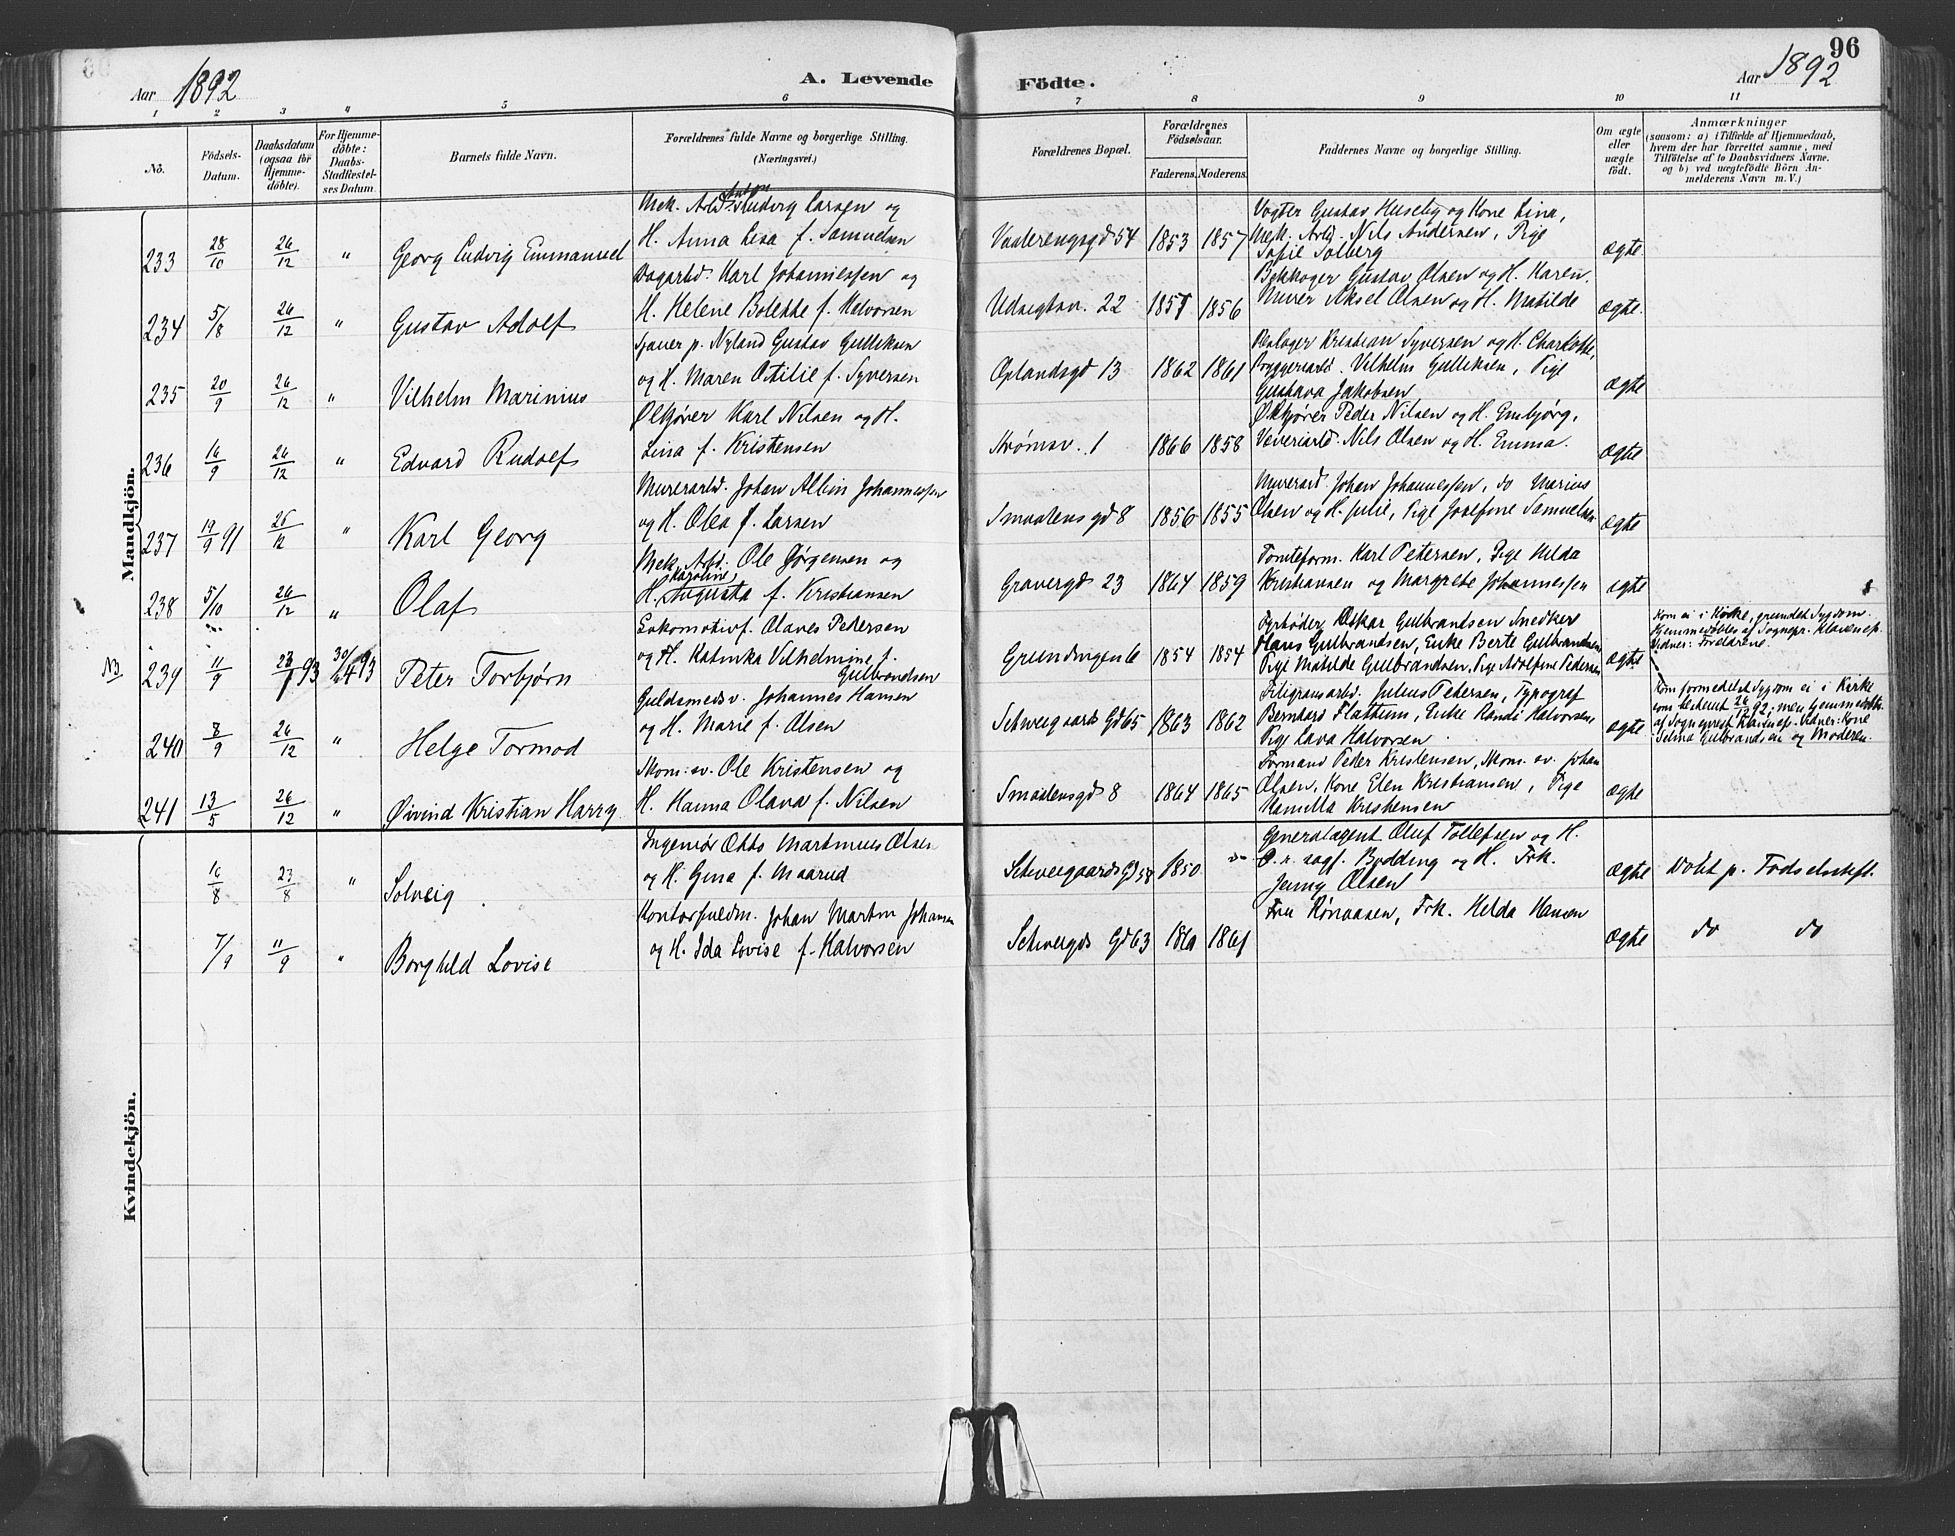 96
Aar 1892
A. Levende Födte.
Aar 1892
1 2 3 4 5 6 7 8 9 10 11
No.
Födsels-Datum.
Daabsdatum (ogsaa for Hjemmedöbte).
For Hjemmedöbte: Daabs-Stadfæstelses Datum.
Barnets fulde Navn.
Forældrenes fulde Navne og borgerlige Stilling. (Næringsvei.)
Forældrenes Bopæl.
Forældrenes Födselsaar.
Faderens. Moderens.
Faddernes Navne og borgerlige Stilling.
Om ægte eller uægte födt.
Anmærkninger
(saasom: a) i Tilfælde af Hjemmedaab, hvem der har forrettet samme, med Tilföielse af to Daabsvidners Navne. og b) ved uægtefödte Börn Anmelderens Navn m. V.)
Mandkjön.
233 28/10 26/12 " Georg Ludvig Emmanuel
Mek. Arbd. Anton Ludvig Larsen og
H. Anna Lesa f. Samuelsen
Vaalerengsgd 54 1853 1857
Vogter Gustav Huseby og Kone Lina,
Mek. Arbd. Nils Andersen, Pige
Sofie Solberg
ægte
234 5/8 26/12 " Gustav Adolf
Dagarbd. Karl Johannessen og
H. Helene Bolette f. Halvorsen
Udsigtsv. 22 1851 1856
Bekkoger Gustav Olsen og H. Karen.
Murer Aksel Olsen og H. Matilde
ægte.
235 20/9 26/12 " Vilhelm Marinius
Sjauer p. Nyland Gustav Gulliksen
og H. Maren Otilie f. Syversen
Oplandsgd 13 1862 1861
Kristian Syversen og H. Charlotte,
Bryggeriarbd. Vilhelm Gulliksen, Pige
Gustava Jakobsen
ægte
236 16/9 26/12 " Edvard Rudolf
Ølkjører Karl Nilsen og H.
Lina f. Kristensen
Strømsv. 1 1866 1858
Ølkjører Peder Nilsen og H. Embjørg,
Veveriarbd. Nils Olsen og H. Emma.
ægte
237 19/9 91 26/12 " Karl Georg
Murerarbd. Johan Albin Johannessen
og H. Olea f. Larsen
Smaalensgd 8 1856 1855
Murerarbd. Johan Johannessen, do Marius
Olsen og H. Julie, Pige Josefine Samuelsen
ægte
238 5/10 26/12 " Olaf
Mek. Arbd. Ole Jørgensen og
H. Karoline Augusta f. Kristiansen
Gravergd 23 1864 1859
Tomteform. Karl Petersen, Pige Helda
Kristiansen og Margrete Johannessen
ægte
NB 239 11/9 93 30/4 93 Peter Torbjørn
Lokomotivf. Olaves Pedersen
og H. Katinka Vilhelmine f.
Gulbrandsen
Grundingen 6 1854 1854
Fyrbøder Oskar Gulbrandsen Snedker
Hans Gulbrandsen, Enke Berte Gulbrandsen
Pige Matilde Gulbrandsen, Pige Adolfine Pedersen
ægte
Kom ei i Kirke, grundet Sygdom.
Hjemmedøbtes af Sognepr. Klavenes.
Vidner: Forældrene.
240 8/9 26/12 " Helge Tormod
Guldsmedsv. Johannes Hansen
og H. Marie f. Olsen
Schweigaards Gd 65 1863 1862
Filigransarbd. Julius Petersen, Typograf
Bernhard Flathum, Enke Randi Halvorsen
Pige Lava Halvorsen
ægte
Kom formedelst Sygdom ei i Kirke
som bestemt 26/12 92; men hjemmedøbt
af Sogneprest Klavenes. Vidner: Kone
Selma Gulbrandsen og Moderen.
241 13/5 26/12 " Øivind Kristian Harry
Skom: sv. Ole Kristensen og
H. Hanna Olava f. Nilsen
Smaalensgd 8 1864 1865
Formand Peder Kristensen, Skom. sv. Johan
Olsen, Kone Elen Kristiansen, Pige
Kamilla Kristensen
ægte
Kvindekjön.
16/8 23/8 " Solveig
Ingeniør Otto Martinius Olsen
og H. Gina f. Maarud
Schweigaards Gd 58 1850 "
Generalagent Oluf Tollefsen og H.
O. r. sagf. Bodding og H. Frk.
Jenny Olsen
ægte
Døbt p. Fødselsstift.
7/9 11/9 " Borghild Lovise
Kontorfuldm. Johan Martin Johansen
og H. Ida Lovise f. Halvorsen
Schweigds Gd 63 1861
Fru Rønaasen, Frk. Helda Hansen
ægte
do do